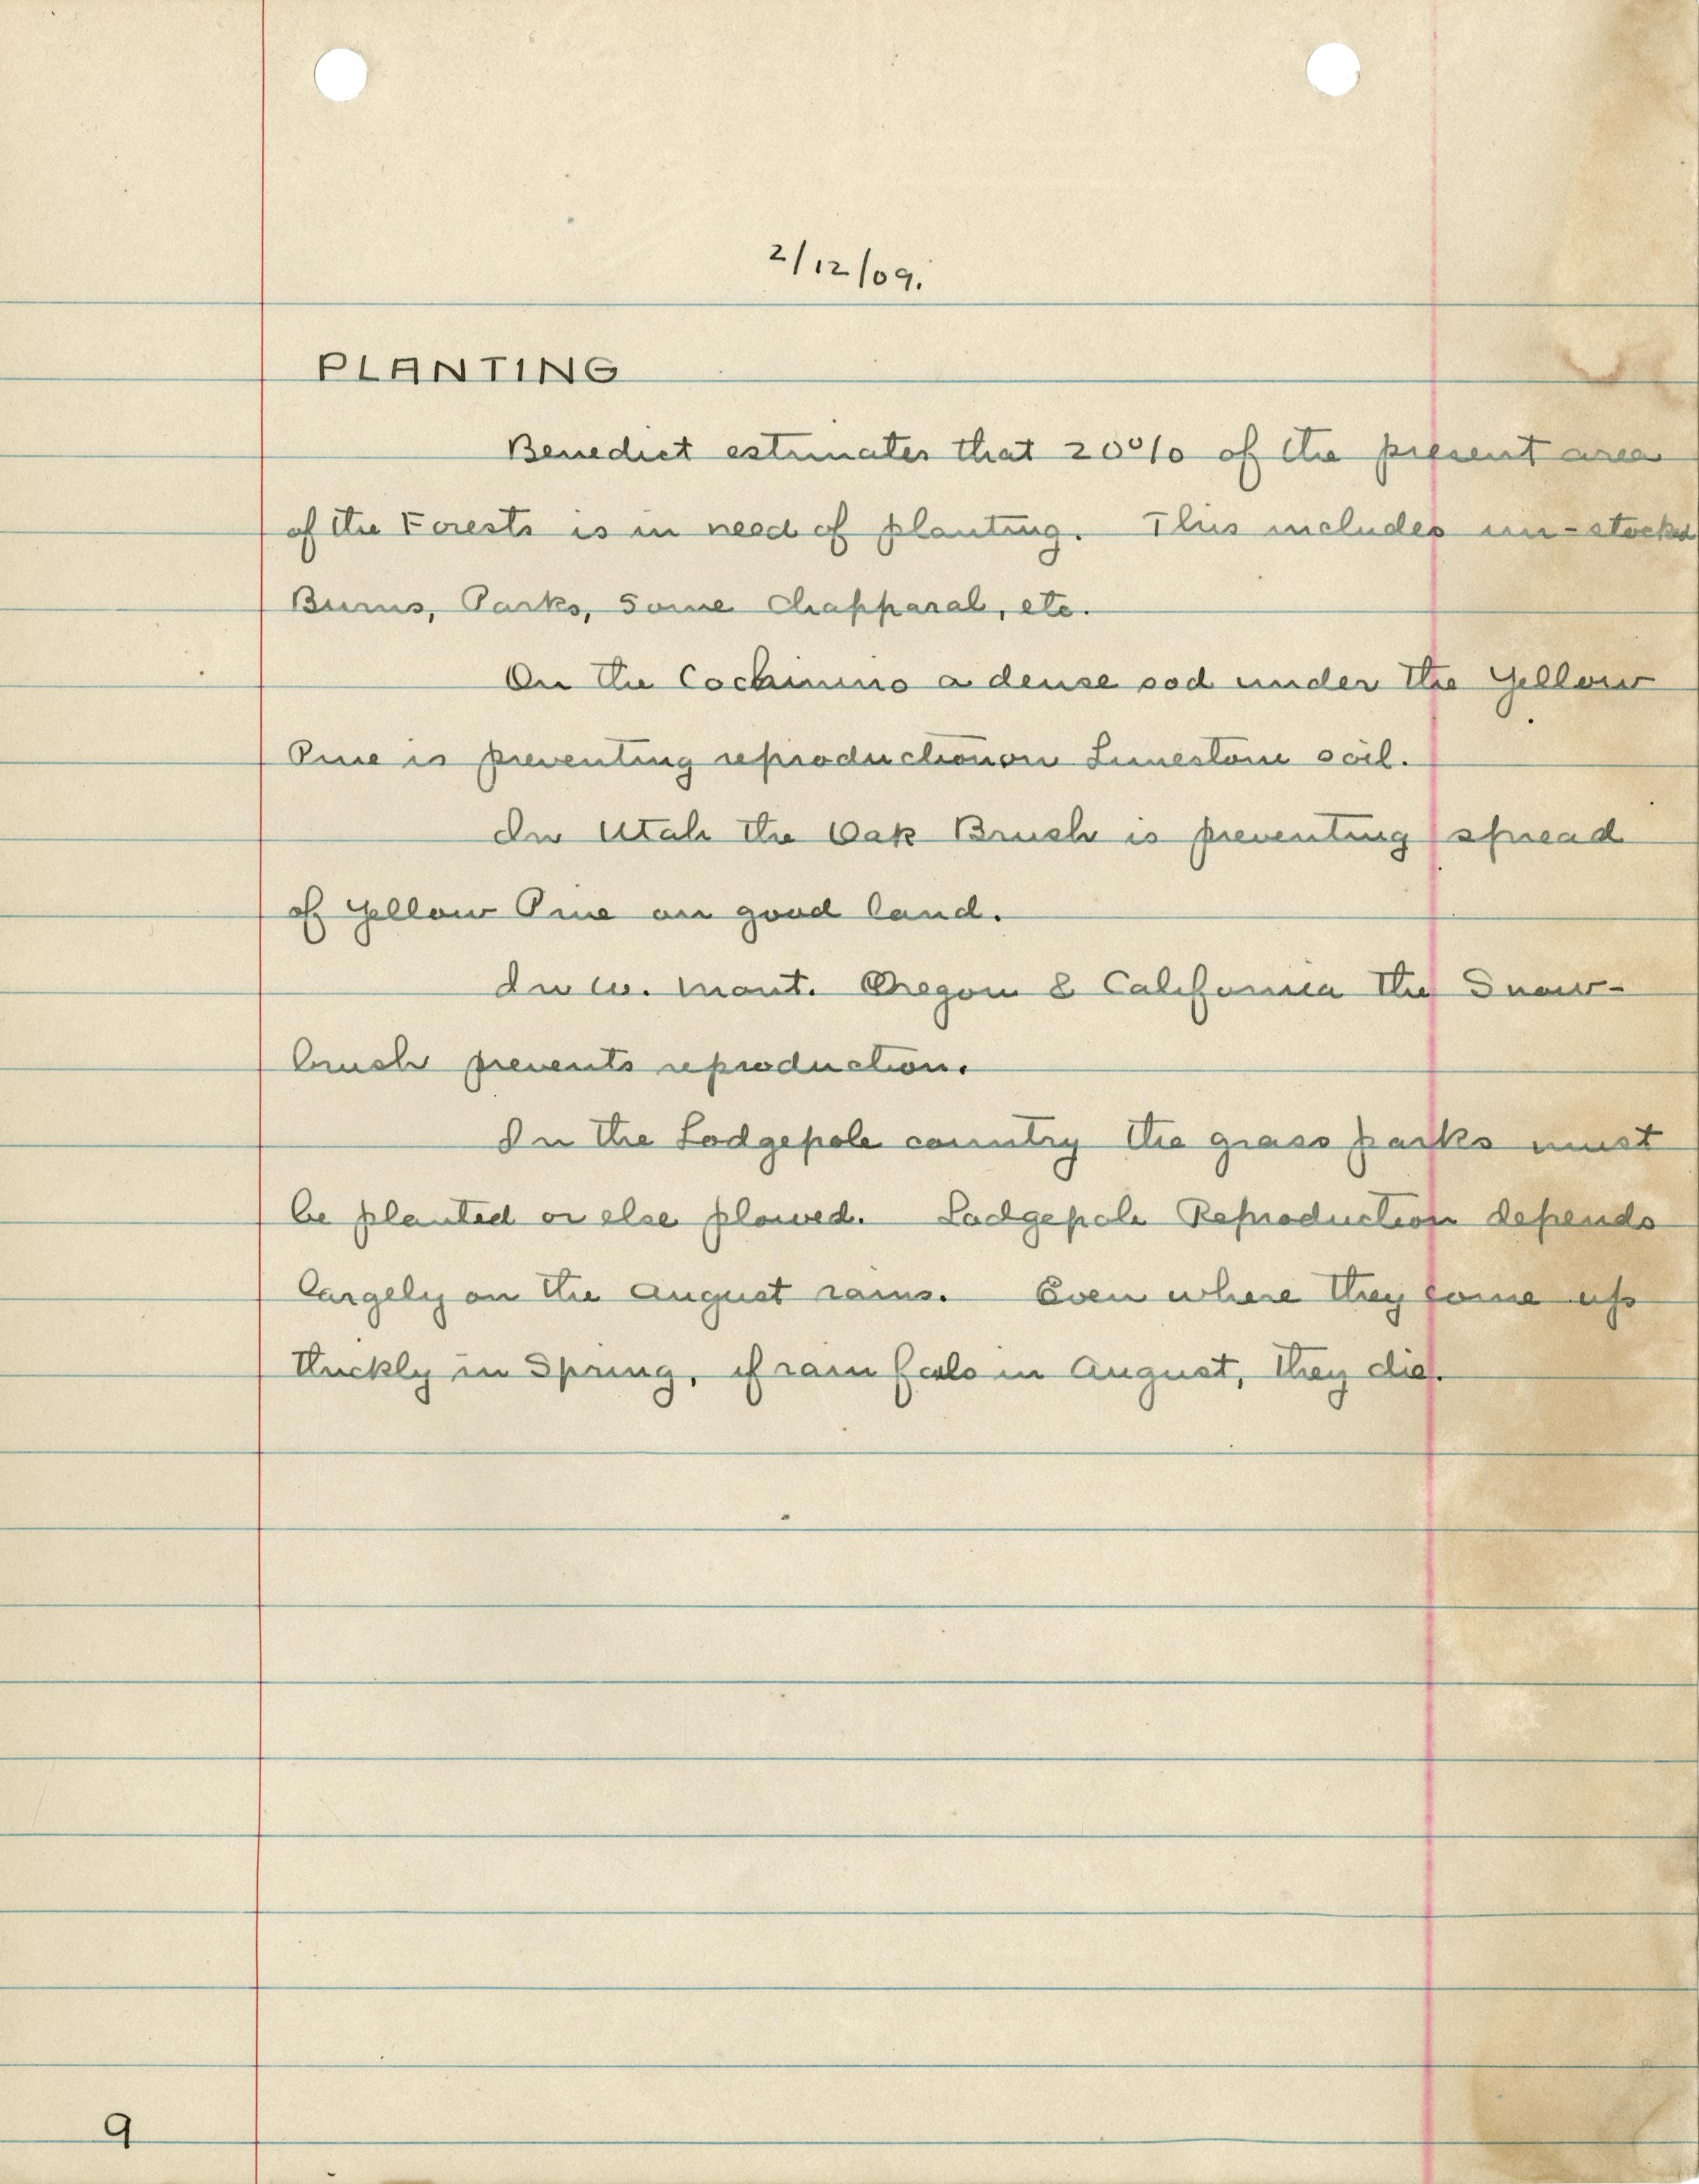 2/12/09.
PLANTING
Benedict estimates that 20% of the present area
of the Forests is in need of planting. This includes un-stocked
Burns, Parks, Some Chapparal, etc.
On the Cochinino a dense sod under the Yellow
Pine is preventing reproduction on Limestone soil.
In Utah the Oak Brush is preventing spread
of Yellow Pine on good land.
In W. Mont. Oregon & California the Snow-
brush prevents reproduction.
In the Lodgepole country the grass parks must
be planted or else plowed. Lodgepole Reproduction depends
largely on the August rains. Even where they come up
thickly in Spring, if rain fails in August, they die.
9